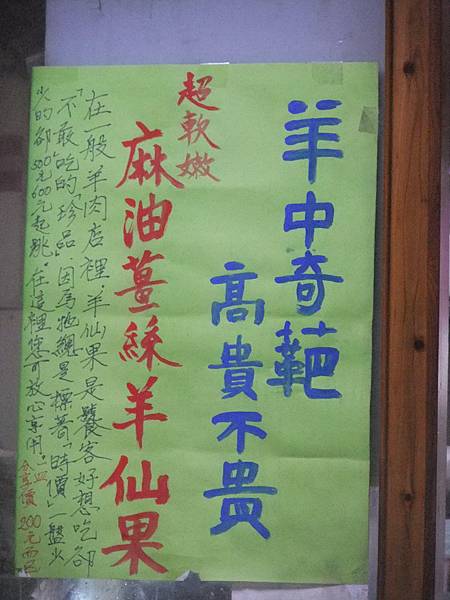 羊中奇靶
高貴不貴
超軟嫩
麻油薑絲羊仙果
在一般羊肉店裡,羊仙果是饕客好想吃卻
「不敢吃的」珍品,因為牠總是標著「時價」一盤少
少的卻500元600元起跳。在這裡您可放心享用。一皿
分享價200元而已